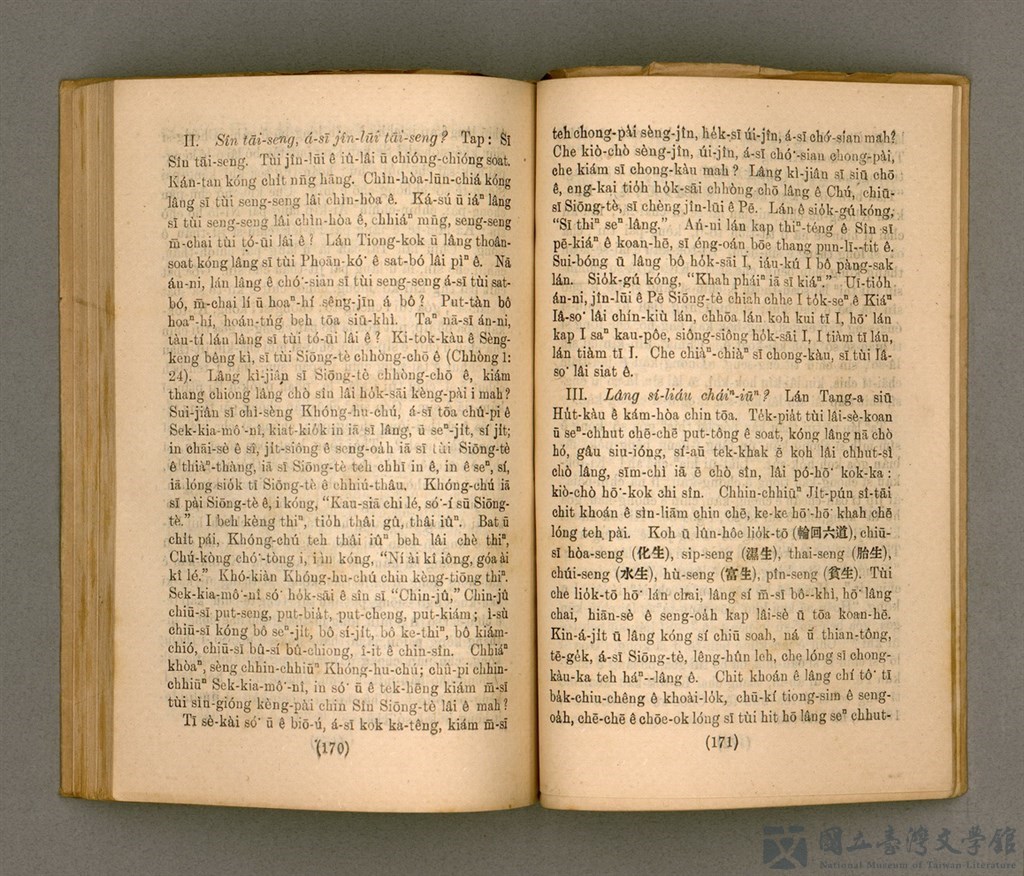 II. Sîn tāi-seng, á-sī jîn-lūi tāi-seng? Tap: Sī
Sîn tāi-seng. Tùi jîn-lūi ê iû-lâi ū chióng-chióng soat.
Kán-tan kóng chit nn̄g hāng. Chìn-hòa-lūn-chiá kóng
lâng sī tùi seng-seng lâi chìn-hòa ê. Ká-sú ū iáⁿ lâng
sī tùi seng-seng lâi chìn-hòa ê, chhiáⁿ mn̄g, seng-seng
m̄-chai tùi tó-ūi lâi ê? Lán Tiong-kok ū lâng thoân-
soat kóng lâng sī tùi Phoân-kó͘ ê sat-bó lâi pìⁿ ê. Nā
án-ni, lán lâng ê chó͘-sian sī tùi seng-seng á-sī tùi sat-
bó, m̄-chai lí ū hoaⁿ-hí sêng-jīn á bô? Put-tàn bô
hoaⁿ-hí, hoán-tńg beh tōa siū-khì. Taⁿ nā-sī án-ni,
tàu-tí lán lâng sī tùi tó-ūi lâi ê? Ki-tok-kàu ê Sèng-
keng bêng kì, sī tùi Siōng-tè chhòng-chō ê (Chhòng 1:
24). Lâng kì-jiân sī Siōng-tè chhòng-chō ê, kiám
thang chiong lâng chò sîn lâi ho̍k-sāi kèng-pài i mah?
Sui-jiân sī chì-sèng Khóng-hu-chú, á-sī tōa chú-pi ê
Sek-kia-mô͘-nî, kiat-kio̍k in iā sī lâng, ū seⁿ-ji̍t, sí ji̍t;
in chāi-sè ê sî, ji̍t-siông ê seng-oa̍h iā sī tùi Siōng-tè
ê thiàⁿ-thàng, iā sī Siōng-tè teh chhī in ê, in ê seⁿ, sí,
iā lóng sio̍k tī Siōng-tè ê chhiú-thâu. Khóng-chú iā
sī pài Siōng-tè ê, i kóng, “Kau-siā chi lé, só͘-í sū Siōng-
tè.” I beh kèng thiⁿ, tio̍h thâi gû, thâi iûⁿ. Bat ū
chi̍t pái, Khóng-chú teh thâi iûⁿ beh lâi chè thiⁿ,
Chú-kòng chó͘-tòng i, i ìn kóng, “Ní ài kî iông, góa ài
kî lé.” Khó-kiàn Khóng-hu-chú chin kèng-tiōng thiⁿ.
Sek-kia-mô͘-nî só͘ ho̍k-sāi ê sîn sī “Chin-jû,” Chin-jû
chiū-sī put-seng, put-bia̍t, put-cheng, put-kiám; ì-sù
chiū-sī kóng bô seⁿ-ji̍t, bô sí-ji̍t, bô ke-thiⁿ, bô kiám-
chió, chiū-sī bû-sí bû-chiong, î-it ê chin-sîn. Chhiáⁿ
khòaⁿ, sèng chhin-chhiūⁿ Khóng-hu-chú; chû-pi chhin-
chhiūⁿ Sek-kia-mô͘-nî, in só͘ ū ê tek-hēng kiám m̄-sī
tùi sìn-gióng kèng-pài chin Sîn Siōng-tè lâi ê mah?
Tī sè-kài só͘ ū ê biō-ú, á-sī kok ka-têng, kiám m̄-sī
(170)
teh chong-pài sèng-jîn, he̍k-sī úi-jîn, á-sī chó͘-sian mah?
Che kiò-chò sèng-jîn, úi-jîn, á-sī chó͘-sian chong-pài,
che kiám sī chong-kàu mah? Lâng kì-jiân sī siū chō
ê, eng-kai tio̍h ho̍k-sāi chhòng chō lâng ê Chú, chiū-
sī Siōng-tè, sī chèng jîn-lūi ê Pē. Lán ê sio̍k-gú kóng,
“Sī thiⁿ seⁿ lâng.” Án-ni lán kap thiⁿ-téng ê Sîn sī
pē-kiáⁿ ê koan-hē, sī éng-oán bōe thang pun-lī--tit ê.
Sui-bóng ū lâng bô ho̍k-sāi I, iáu-kú I bô pàng-sak
lán. Sio̍k-gú kóng, “Khah pháiⁿ iā sī kiáⁿ.” Uī-tio̍h
án-ni, jîn-lūi ê Pē Siōng-tè chiah chhe I to̍k-seⁿ ê Kiáⁿ
Iâ-so͘ lâi chín-kiù lán, chhōa lán koh kui tī I, hō͘ lán
kap I saⁿ kau-pôe, siông-siông ho̍k-sāi I, I tiàm tī lán,
lán tiàm tī I. Che chiàⁿ-chiàⁿ sī chong-kàu, sī tùi Iâ-
so͘ lâi siat ê.
III. Lâng sí-liáu cháiⁿ-iūⁿ? Lán Tang-a siū
Hu̍t-kàu ê kám-hòa chin tōa. Te̍k-pia̍t tùi lâi-sè-koan
ū seⁿ-chhut chē-chē put-tông ê soat, kóng lâng nā chò
hó, gâu siu-ióng, sí-aū tek-khak ē koh lâi chhut-sì
chò lâng, sīm-chì iā ē chò sîn, lâi pó-hō͘ kok-ka:
kiò-chò hō͘-kok chi sîn. Chhin-chhiūⁿ Ji̍t-pún sî-tāi
chit khoán ê sìn-liām chin chē, ke-ke hō͘-hō͘ khah chē
lóng teh pài. Koh ū lûn-hôe lio̍k-tō (輪回六道), chiū-
sī hòa-seng (化生), sip-seng (濕生), thai-seng (胎生),
chúi-seng (水生), hù-seng (富生), pîn-seng (貧生). Tùi
che lio̍k-tō hō͘ lán chai, lâng sí m̄-sī bô--khì, hō͘ lâng
chai, hiān-sè ê seng-oa̍h kap lâi-sè ū tōa koan-hē.
Kin-á-ji̍t ū lâng kóng sí chiū soah, ná ū thian-tông,
tē-ge̍k, á-sī Siōng-tè, lêng-hûn leh, che lóng sī chong-
kàu-ka teh háⁿ--lâng ê. Chit khoán ê lâng chí tô͘ tī
ba̍k-chiu-chêng ê khoài-lo̍k, chū-kí tiong-sim ê seng-
oa̍h, chē-chē ê chōe-ok lóng sī tùi hit hō lâng seⁿ chhut-
(171)
國立臺灣文學館
National Museum of Taiwan Literature